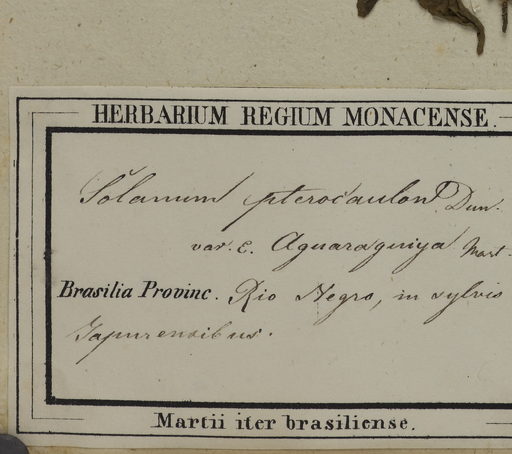 HERBARIUM REGIUM MONACENSE.
Solanum pterocaulon Dun.
var. c. Aguaraquiya Mart.
Brasilia Provinc. Rio Negro, in sylvis
Japurensibus.
Martii iter brasiliense.